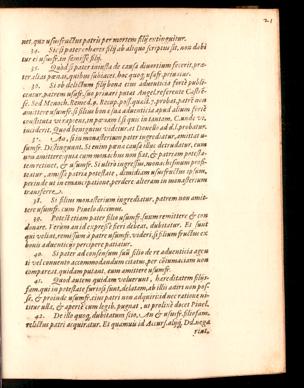 21
net, quo ususfructus patris per mortem filij extinguitur.
34. Si si pater coheres filij ab aliquo scriptus sit, non debi
tur ei ususfr. in semisse filij.
35. Quòd si pater iniusta de causa divortium fecerit, præ-
ter alias pœnas, quibus subiacet, hoc quoq, usufr. priuatur.
36. Et ob delictum filij bona eius aduenticia forte publi-
centur, patrem usufr. suo priuari putat Angel.
Sed Menoch. Remed. Recup. poss. probat, patrẽ non
amittere usumfr. si filius bona sua aduenticia apud alium forè
constituta
inciderit. Quod benignius videtur, at Decello ad d.l. probatur.
37. An, si in monasterium pater ingrediatur, amittat u-
sumfr. Distinguunt. Si enim pœnæ causa illuc detrudatur, eum
non amittere: quia cum monachus non fiat, & patriam potesta-
tem retinet, & usumfr. Si ultrò ingressus, monachismum profi-
teatur, amissa patria potestate, dimidiam ususfructus ipsum,
perinde ut in emancipatione, perdere alteram in monasterium
transferre.
38. Si filius monasterium ingrediatur, patrem non amit-
tere usumfr. cum Pinelo dicemus.
39. Potest etiam pater filio usumfr. suum remittere & con
dinare. Verùm an id expressè fieri debeat, dubitatur. Et sunt
qui velint, remissum à patre usumfr. videri, si filium fructus ex
bonis aduenticijs percipere patiatur.
40. Si pater ad consensum suũ filio de re aduenticia agen
ti vel conuento accommodandum citatus, per cõtumaciam non
compareat, quidam putant, eum amittere usumfr.
41. Quòd autem quidam voluerunt, hæreditatem filijs-
fam. qui in potestate furiosi sunt, delatam, ab illis adiri non pos-
se, & proinde usumfr. eius patri non adquiri: id nec ratione ni-
titur ulla, & apertè cum legib. pugnat, ut prolixè docet Pinel.
42. De illo quoq, dubitatum scio, An & ususfr. filiofam.
relictus patri acquiratur. Et quamuis id Accurs. alijq, Dd. nega
rint,